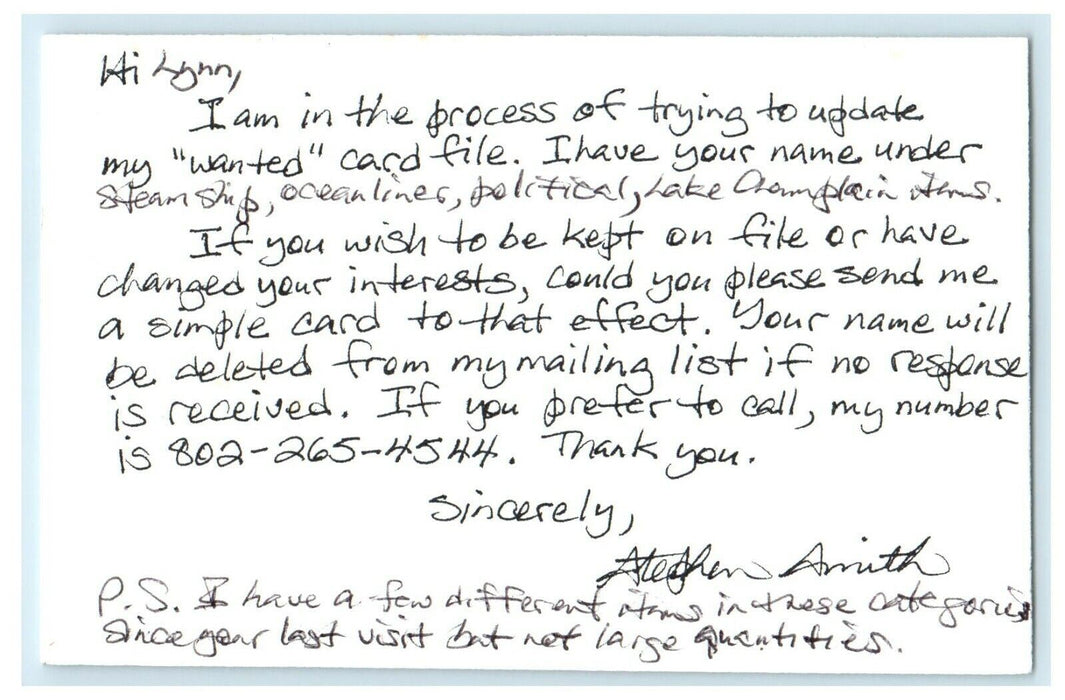 Hi Lynn,
I am in the process of trying to update
my "wanted" card file. I have your name under
steamship, oceanliner, political, Lake Champlain items.
If you wish to be kept on file or have
changed your interests, could you please send me
a simple card to that effect. Your name will
be deleted from my mailing list if no response
is received. If you prefer to call, my number
is 802-265-4544. Thank you.
Sincerely,
Stephen Smith
P.S. I have a few different items in these categories
since your last visit but not large quantities.